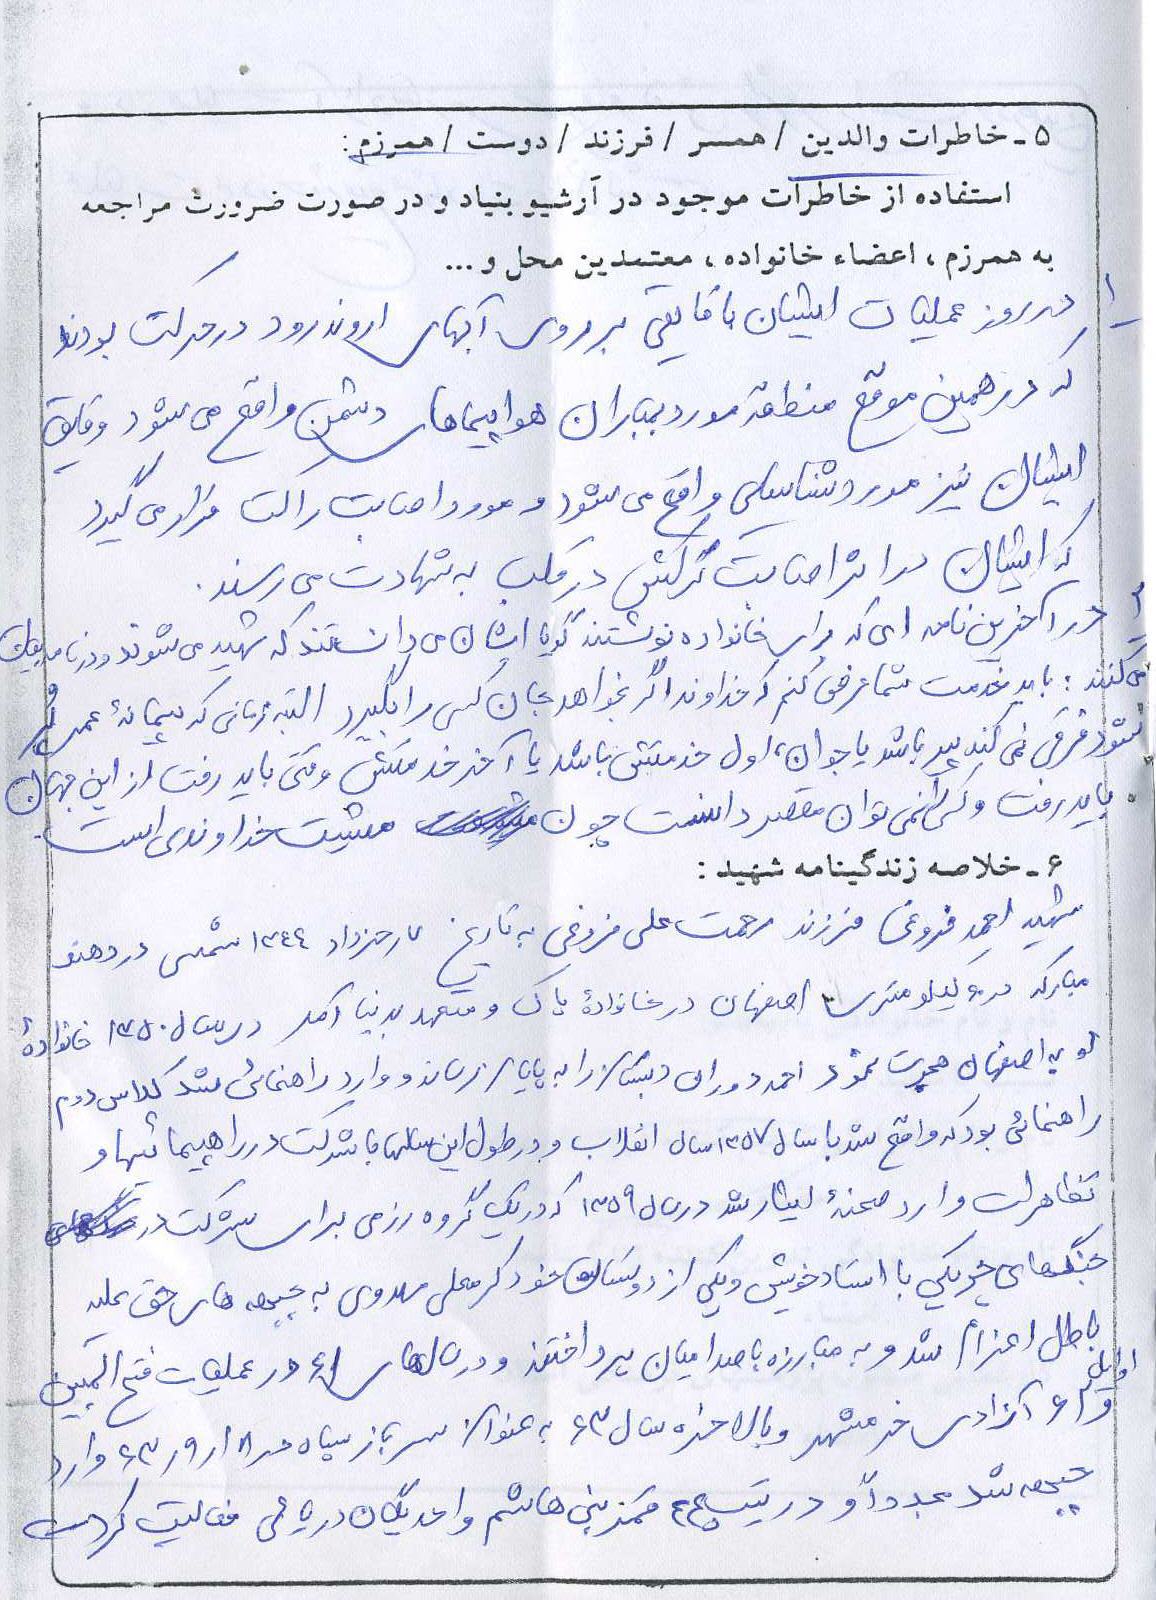 ۵ - خاطرات والدین / همسر / فرزند / دوست / همرزم:
استفاده از خاطرات موجود در آرشیو بنیاد و در صورت ضرورت مراجعه
به همرزم ، اعضاء خانواده ، معتمدین محل و ...
۱ در روز عملیات ایشان با قایقی بر روی آبهای اروندرود در حرکت بودند
که در همین موقع منطقه مورد بمباران هواپیماهای دشمن واقع می شود و قایق
ایشان نیز مورد شناسایی واقع می شود و مورد اصابت راکت قرار می گیرد
که ایشان در اثر اصابت ترکش در قلب به شهادت می رسند.
۲ در آخرین نامه ای که برای خانواده نوشتند گویا ایشان می دانستند که شهید می شوند و در نامه
می کنند : باید خدمت شما عرض کنم که خداوند اگر بخواهد جان کسی را بگیرد البته زمانی که پیمانهٔ عمرش پُر
شود فرقی نمی کند پیر باشد یا جوان، اول خدمتش باشد یا آخر خدمتش وقتی باید رفت از این جهان
باید رفت و کسی را نمی توان مقصر دانست چون مشیت خداوندی است
۶ - خلاصه زندگینامه شهید :
شهید احمد فروغی فرزند رحمت علی فروغی به تاریخ خرداد ۱۳۴۴ شمسی در دهنو
مبارکه در کیلومتری اصفهان در خانوادهٔ پاک و متعهد بدنیا آمد در سال ۱۳۵۰ خانوادهٔ
او به اصفهان هجرت نمود احمد دوران دبستان را به پایان رساند و وارد راهنمائی شد کلاس دوم
راهنمائی بود که واقع شد با سال ۱۳۵۷ سال انقلاب و در طول این سالها با شرکت در راهپیمائیها و
تظاهرات وارد صحنهٔ ایثار شد در سال ۱۳۵۹ که در یک گروه رزمی برای شرکت در
جنگهای چریکی با استاد خویش و یکی از دوستان خود کرمعلی مهدوی به جبهه های حق علیه
باطل اعزام شد و به مبارزه با صدامیان پرداختند و در سالهای ۶۱ در عملیات فتح المبین
و اوایل ۶۱ آزادی خرمشهر و بالاخره سال ۶۳ به عنوان سرباز سپاه در ۶۳ وارد
جبهه شد مجدداً و در تیپ ۴۴ قمر بنی هاشم واحد یگان دریائی فعالیت کردند